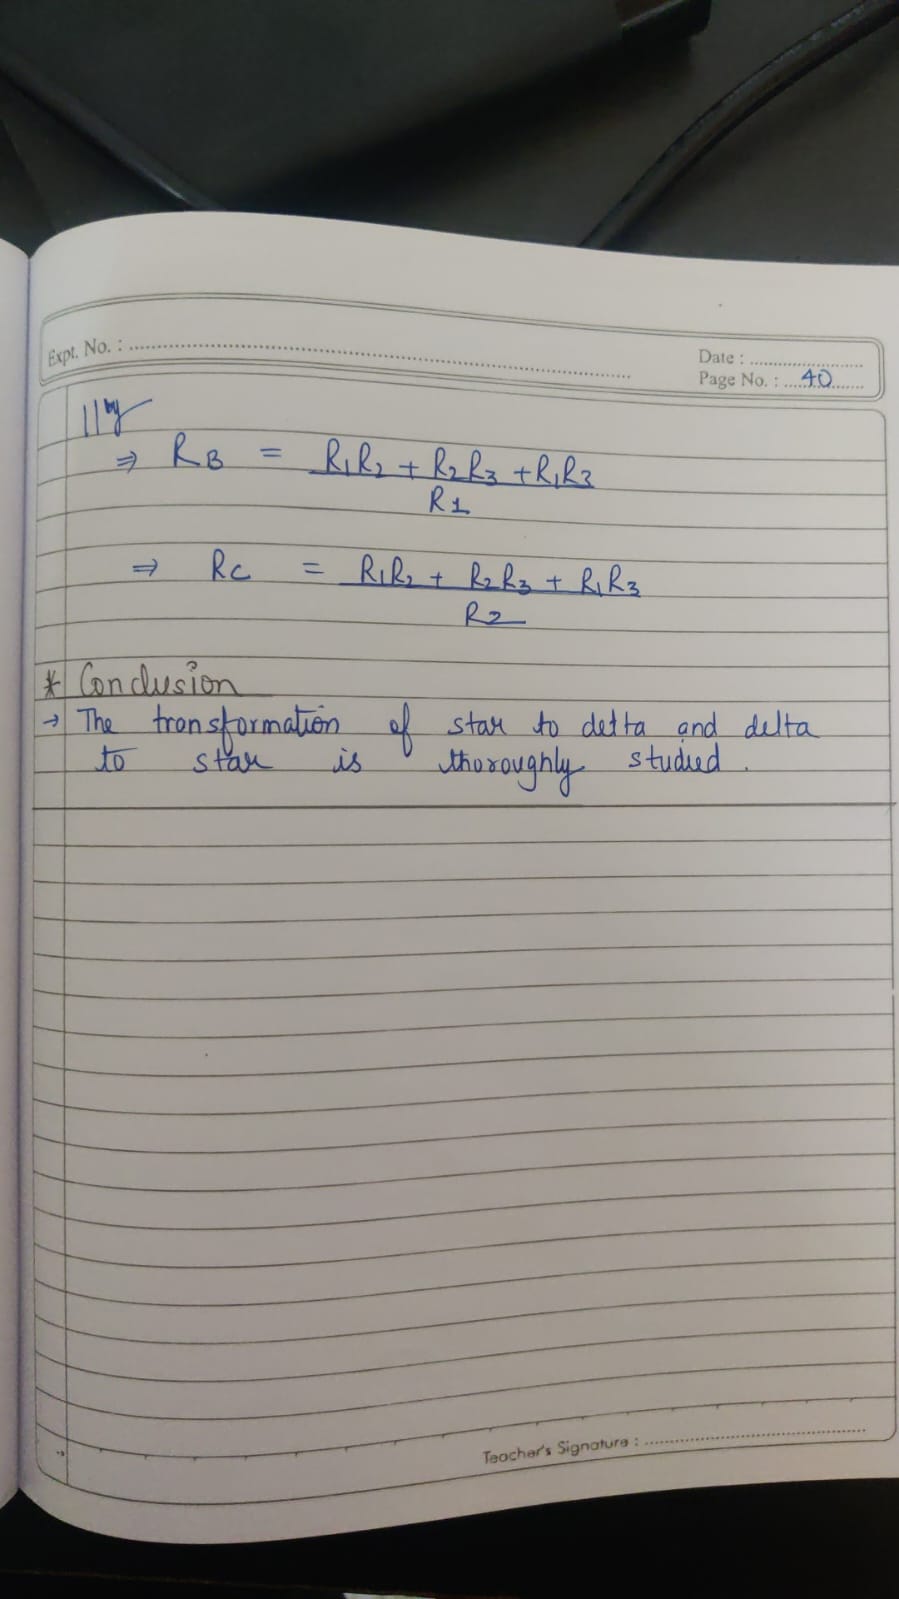 Expt. No. :
Date :
Page No. : 40
|||ly
⇒ RB = R1R2 + R2R3 + R1R3
R1
⇒ RC = R1R2 + R2R3 + R1R3
R2
* Conclusion
→ The transformation of star to delta and delta
to star is thoroughly studied.
Teacher's Signature :